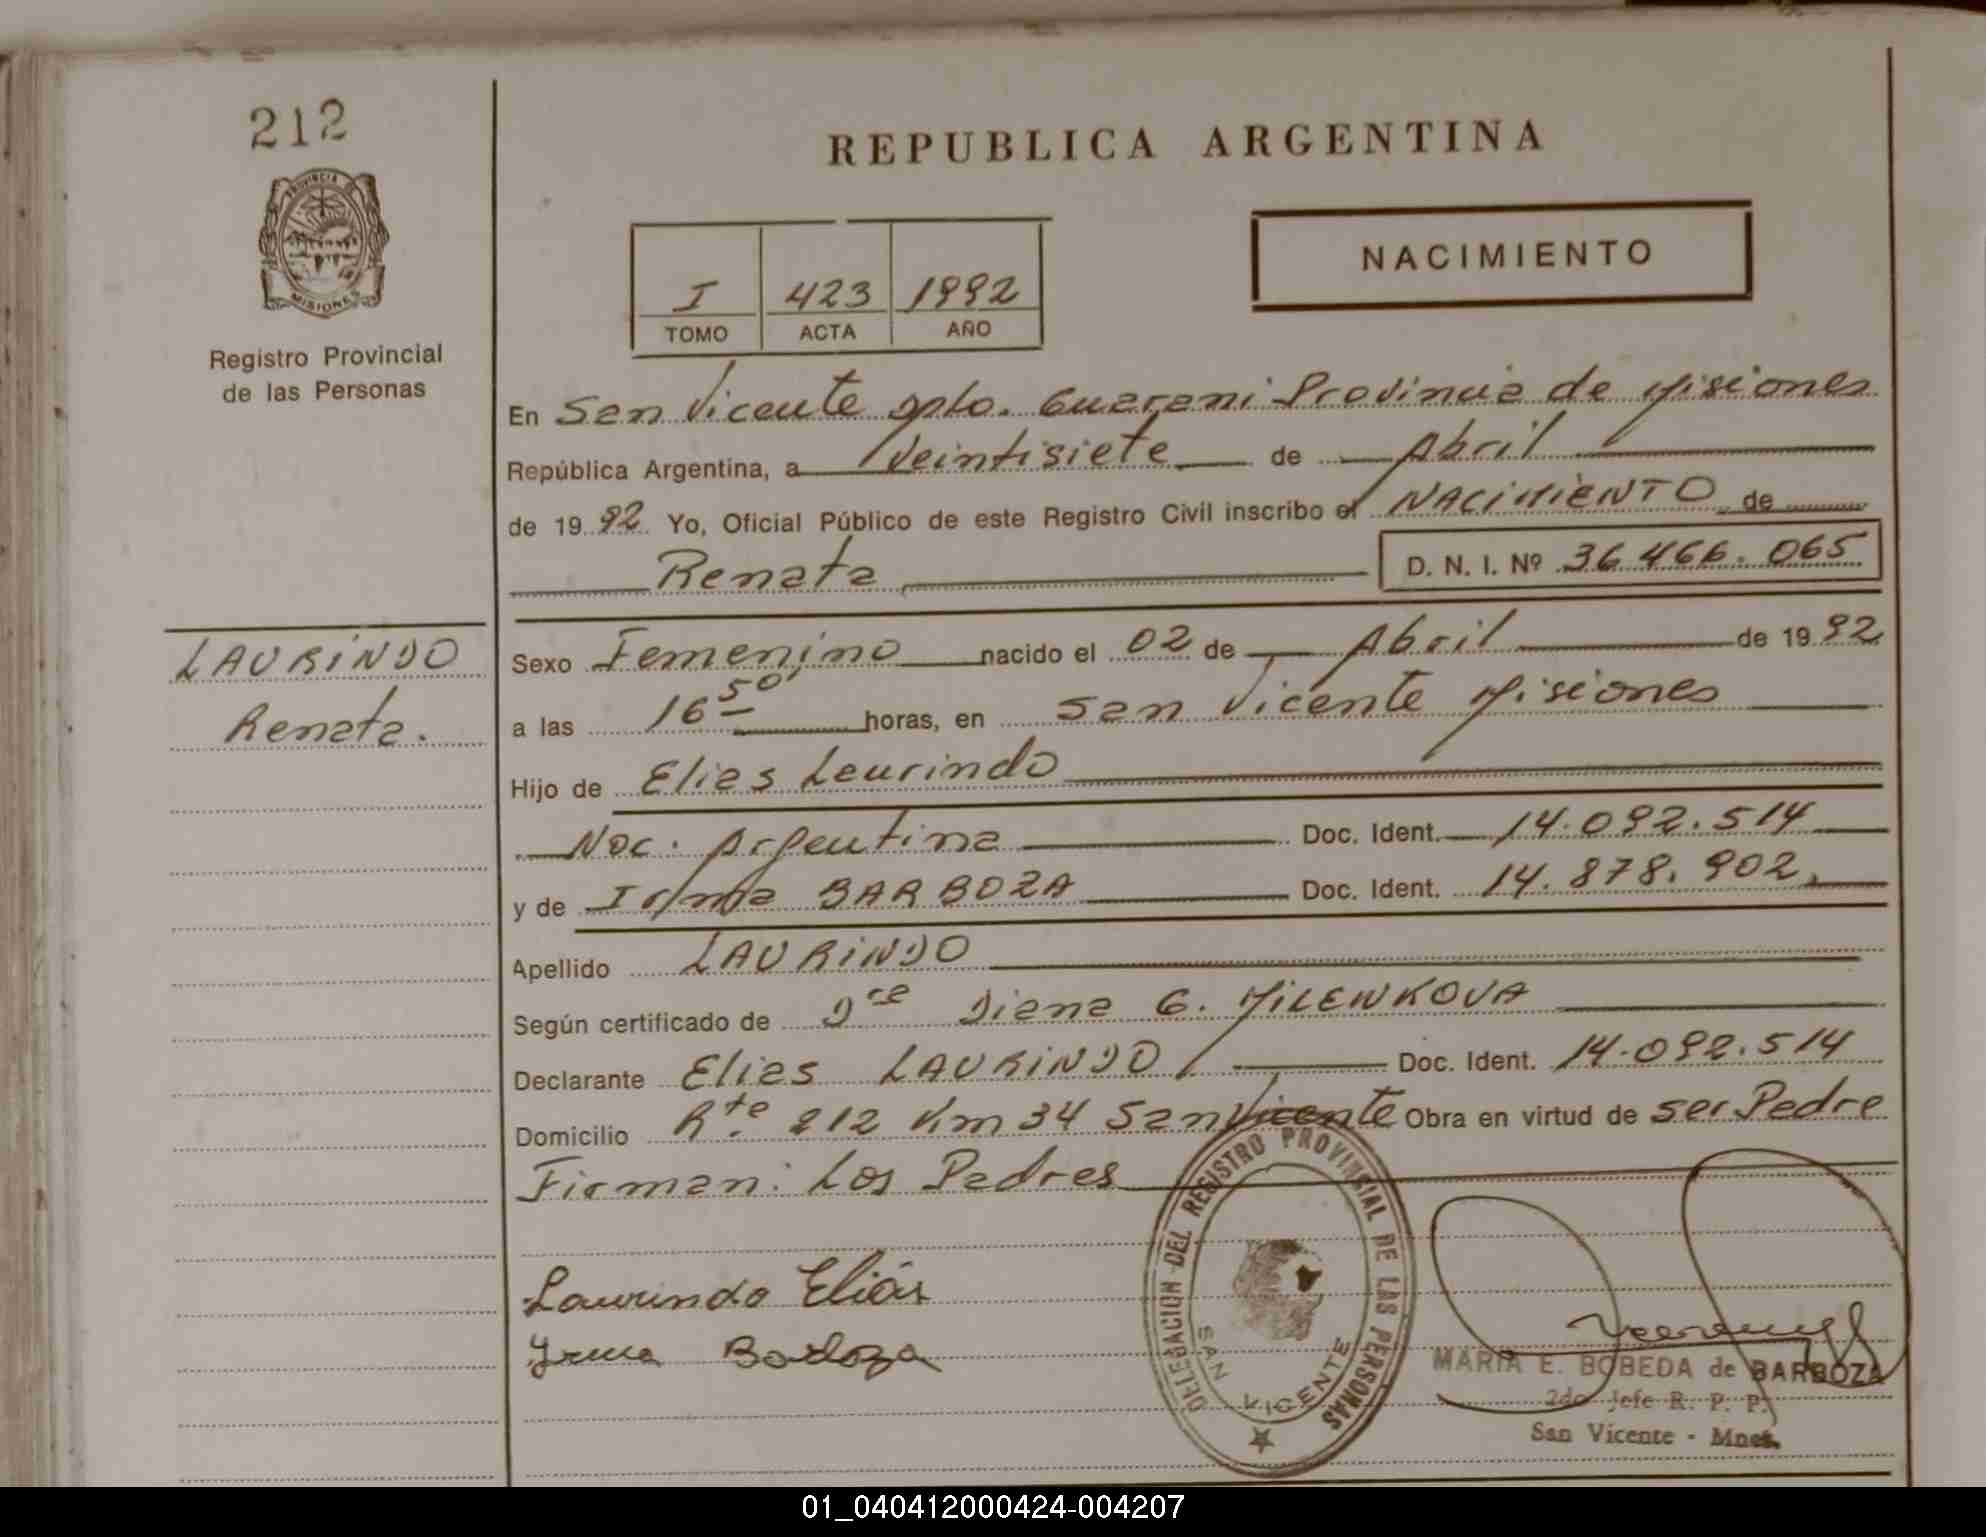 212
PROVINCIA DE
MISIONES
Registro Provincial
de las Personas
LAURINDO
Renata.
REPUBLICA ARGENTINA
I 423 1992
TOMO ACTA AÑO
NACIMIENTO
En San Vicente Dpto. Guarani Provincia de Misiones
República Argentina, a Veintisiete de Abril
de 1992 Yo, Oficial Público de este Registro Civil inscribo el NACIMIENTO de
Renata
D. N. I. Nº 36.466.065
Sexo Femenino nacido el 02 de Abril de 1992
a las 16 50 horas, en San Vicente Misiones
Hijo de Elias Laurindo
Nac. Argentina Doc. Ident. 14.092.514
y de Irma BARBOZA Doc. Ident. 14.878.902
Apellido LAURINDO
Según certificado de Dra Diana G. MILENKOVA
Declarante Elias LAURINDO Doc. Ident. 14.092.514
Domicilio Rta. 212 Km 34 San Vicente Obra en virtud de ser Padre
Firman: Los Padres
Laurindo Eliás
Yrma Barboza
DELEGACION DEL REGISTRO PROVINCIAL DE LAS PERSONAS
SAN VICENTE
MARIA E. BOBEDA de BARBOZA
2do Jefe R. P. P.
San Vicente - Mnes.
01_040412000424-004207